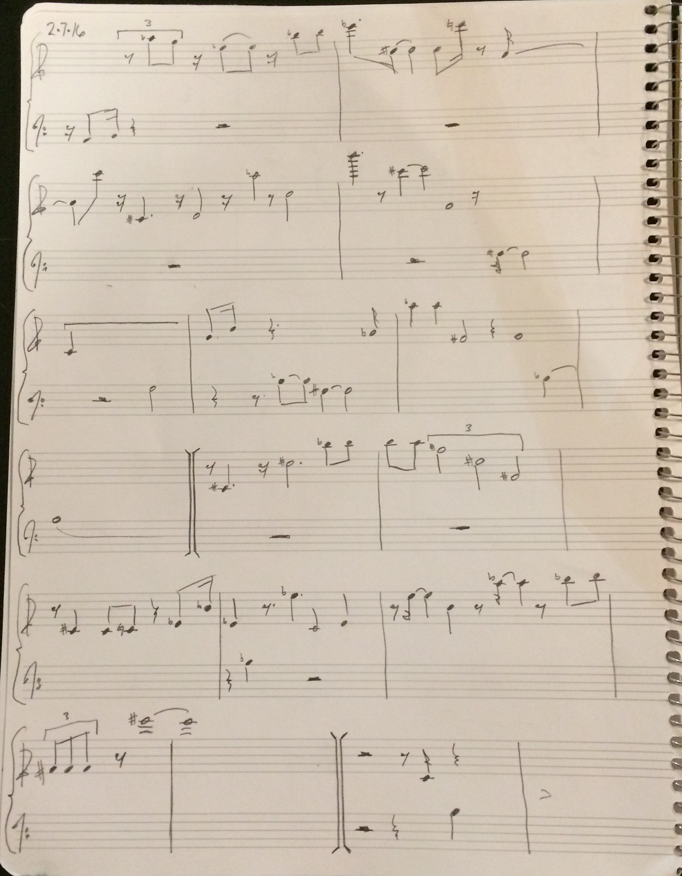 2.7.16
3
3
3